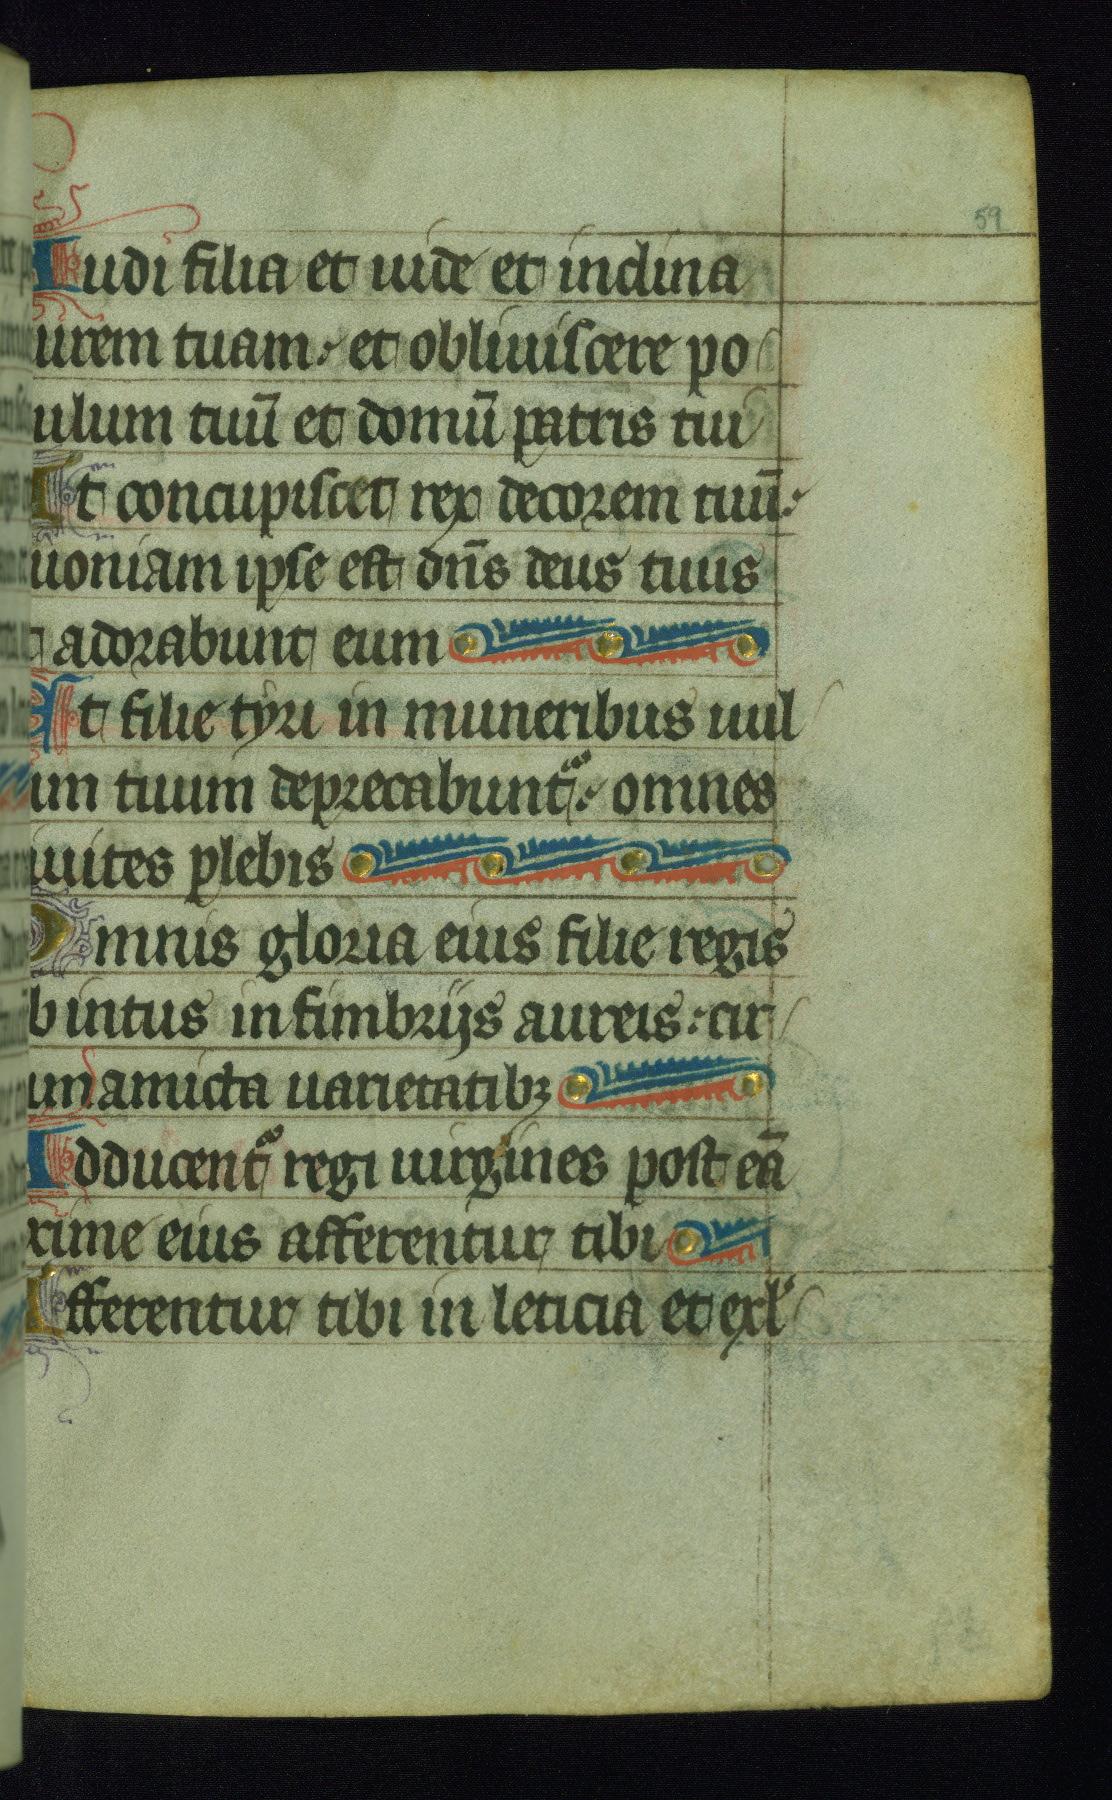 59
Audi filia et uide et inclina
urem tuam: et obliuiscere po
ulum tuū et domū patris tui
Et concupiscet rex decorem tuū:
uoniam ipse est dn̄s deus tuus
t adorabunt eum
Et filie tyri in muneribus uul
um tuum deprecabuntᷣ: omnes
iuites plebis
Omnis gloria eius filie regis
b intus in fimbrijs aureis: cir
um amicta uarietatibꝫ
Adducentᷣ regi uirgines post eā
xime eius afferentur tibi
Afferentur tibi in leticia et exl'